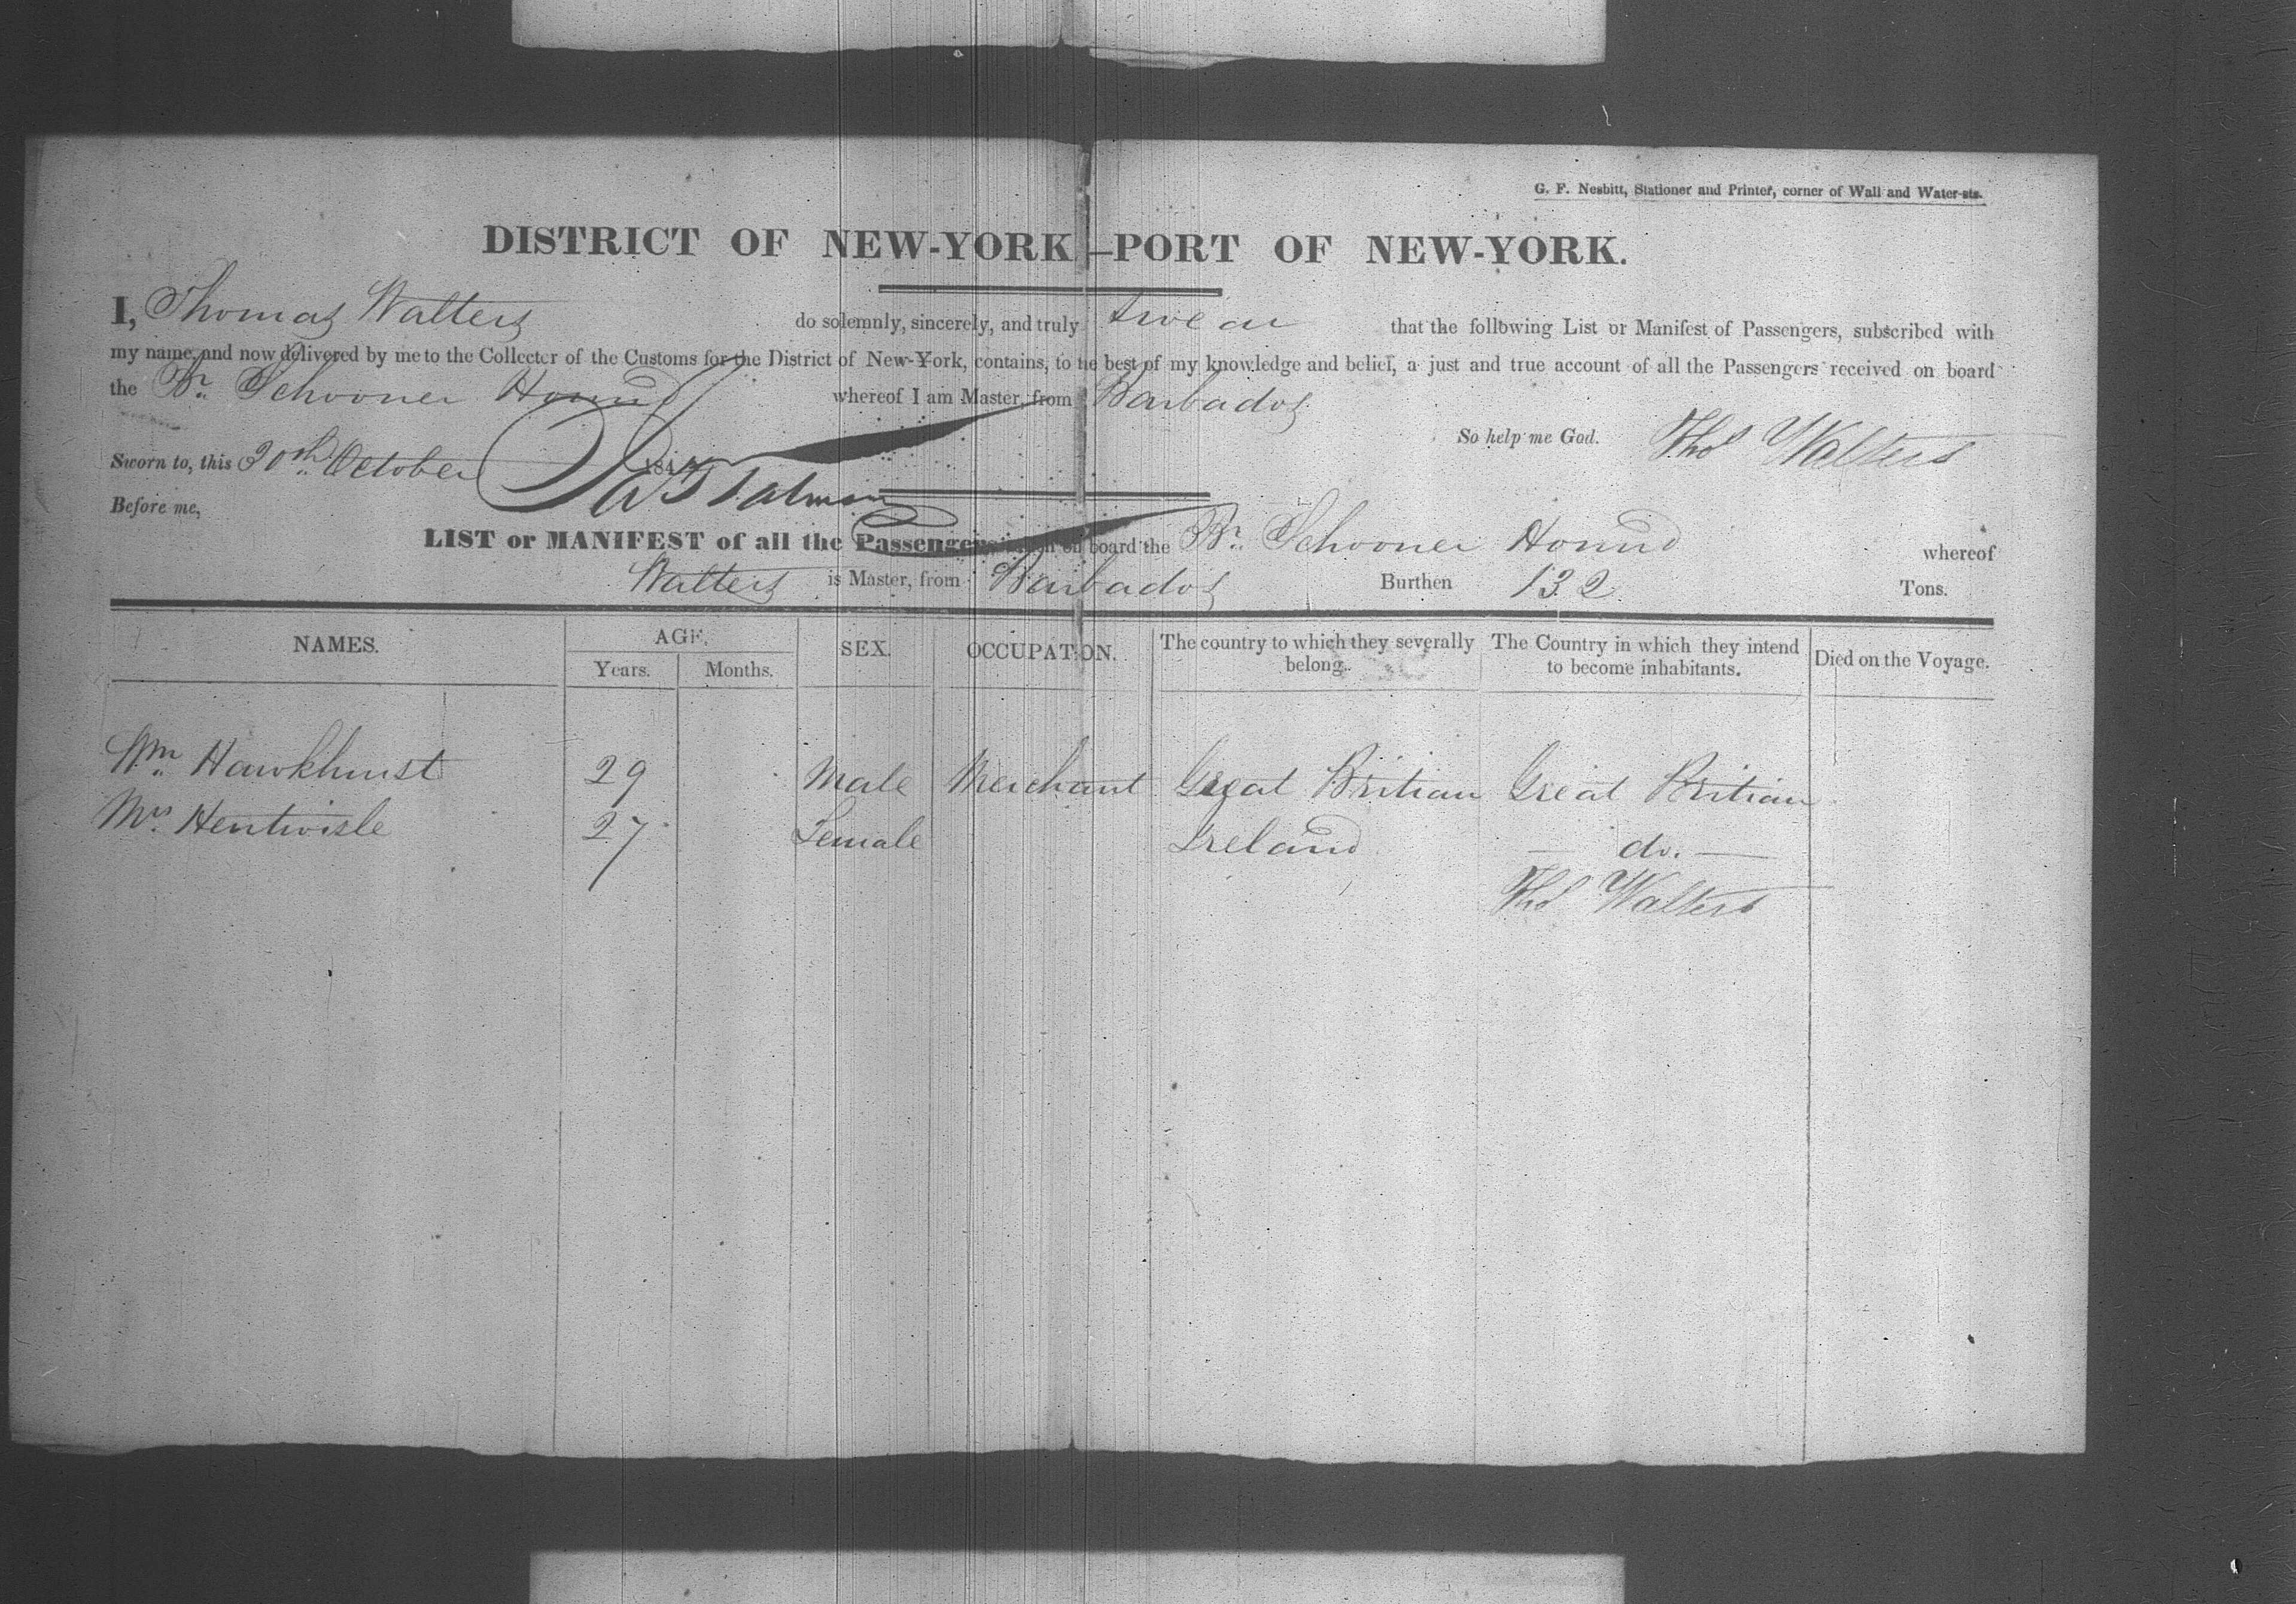 G. F. Nesbitt, Stationer and Printer, corner of Wall and Water-sts.
DISTRICT OF NEW-YORK—PORT OF NEW-YORK.
I, Thomas Walters do solemnly, sincerely, and truly swear that the following List or Manifest of Passengers, subscribed with
my name, and now delivered by me to the Collector of the Customs for the District of New-York, contains, to the best of my knowledge and belief, a just and true account of all the Passengers received on board
the Br. Schooner Hound whereof I am Master, from Barbados
So help me God. Thos Walters
Sworn to, this 20th October 184
Before me,
LIST or MANIFEST of all the Passengers taken on board the Br. Schooner Hound whereof
Walters is Master, from Barbados Burthen 132 Tons.
NAMES. AGE. SEX. OCCUPATION. The country to which they severally belong. The Country in which they intend to become inhabitants. Died on the Voyage.
Years. Months.
Wm. Hawkhurst 29 Male Merchant Great Britian Great Britian
Mrs. Hentwisle 27 Female Ireland — do. —
Thos Walters